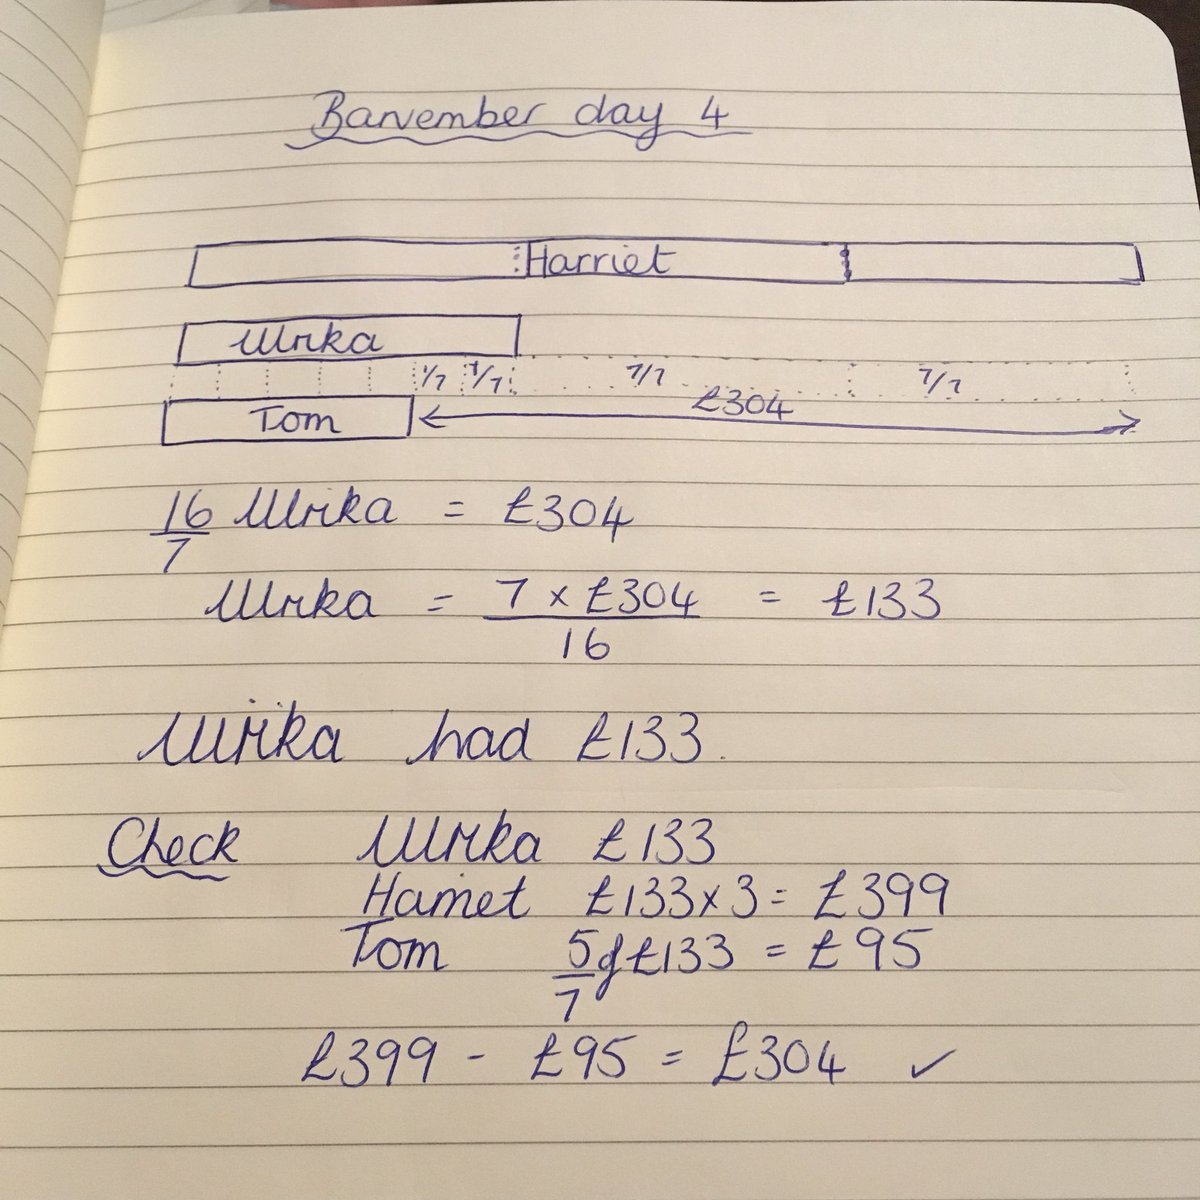 Barvember day 4
Harriet
Ulrika
1/7 1/7 7/7 7/7
£304
Tom
16/7 Ulrika = £304
Ulrika = 7 x £304 / 16 = £133
Ulrika had £133.
Check Ulrika £133
Harriet £133x3 = £399
Tom 5/7 of £133 = £95
£399 - £95 = £304 ✓